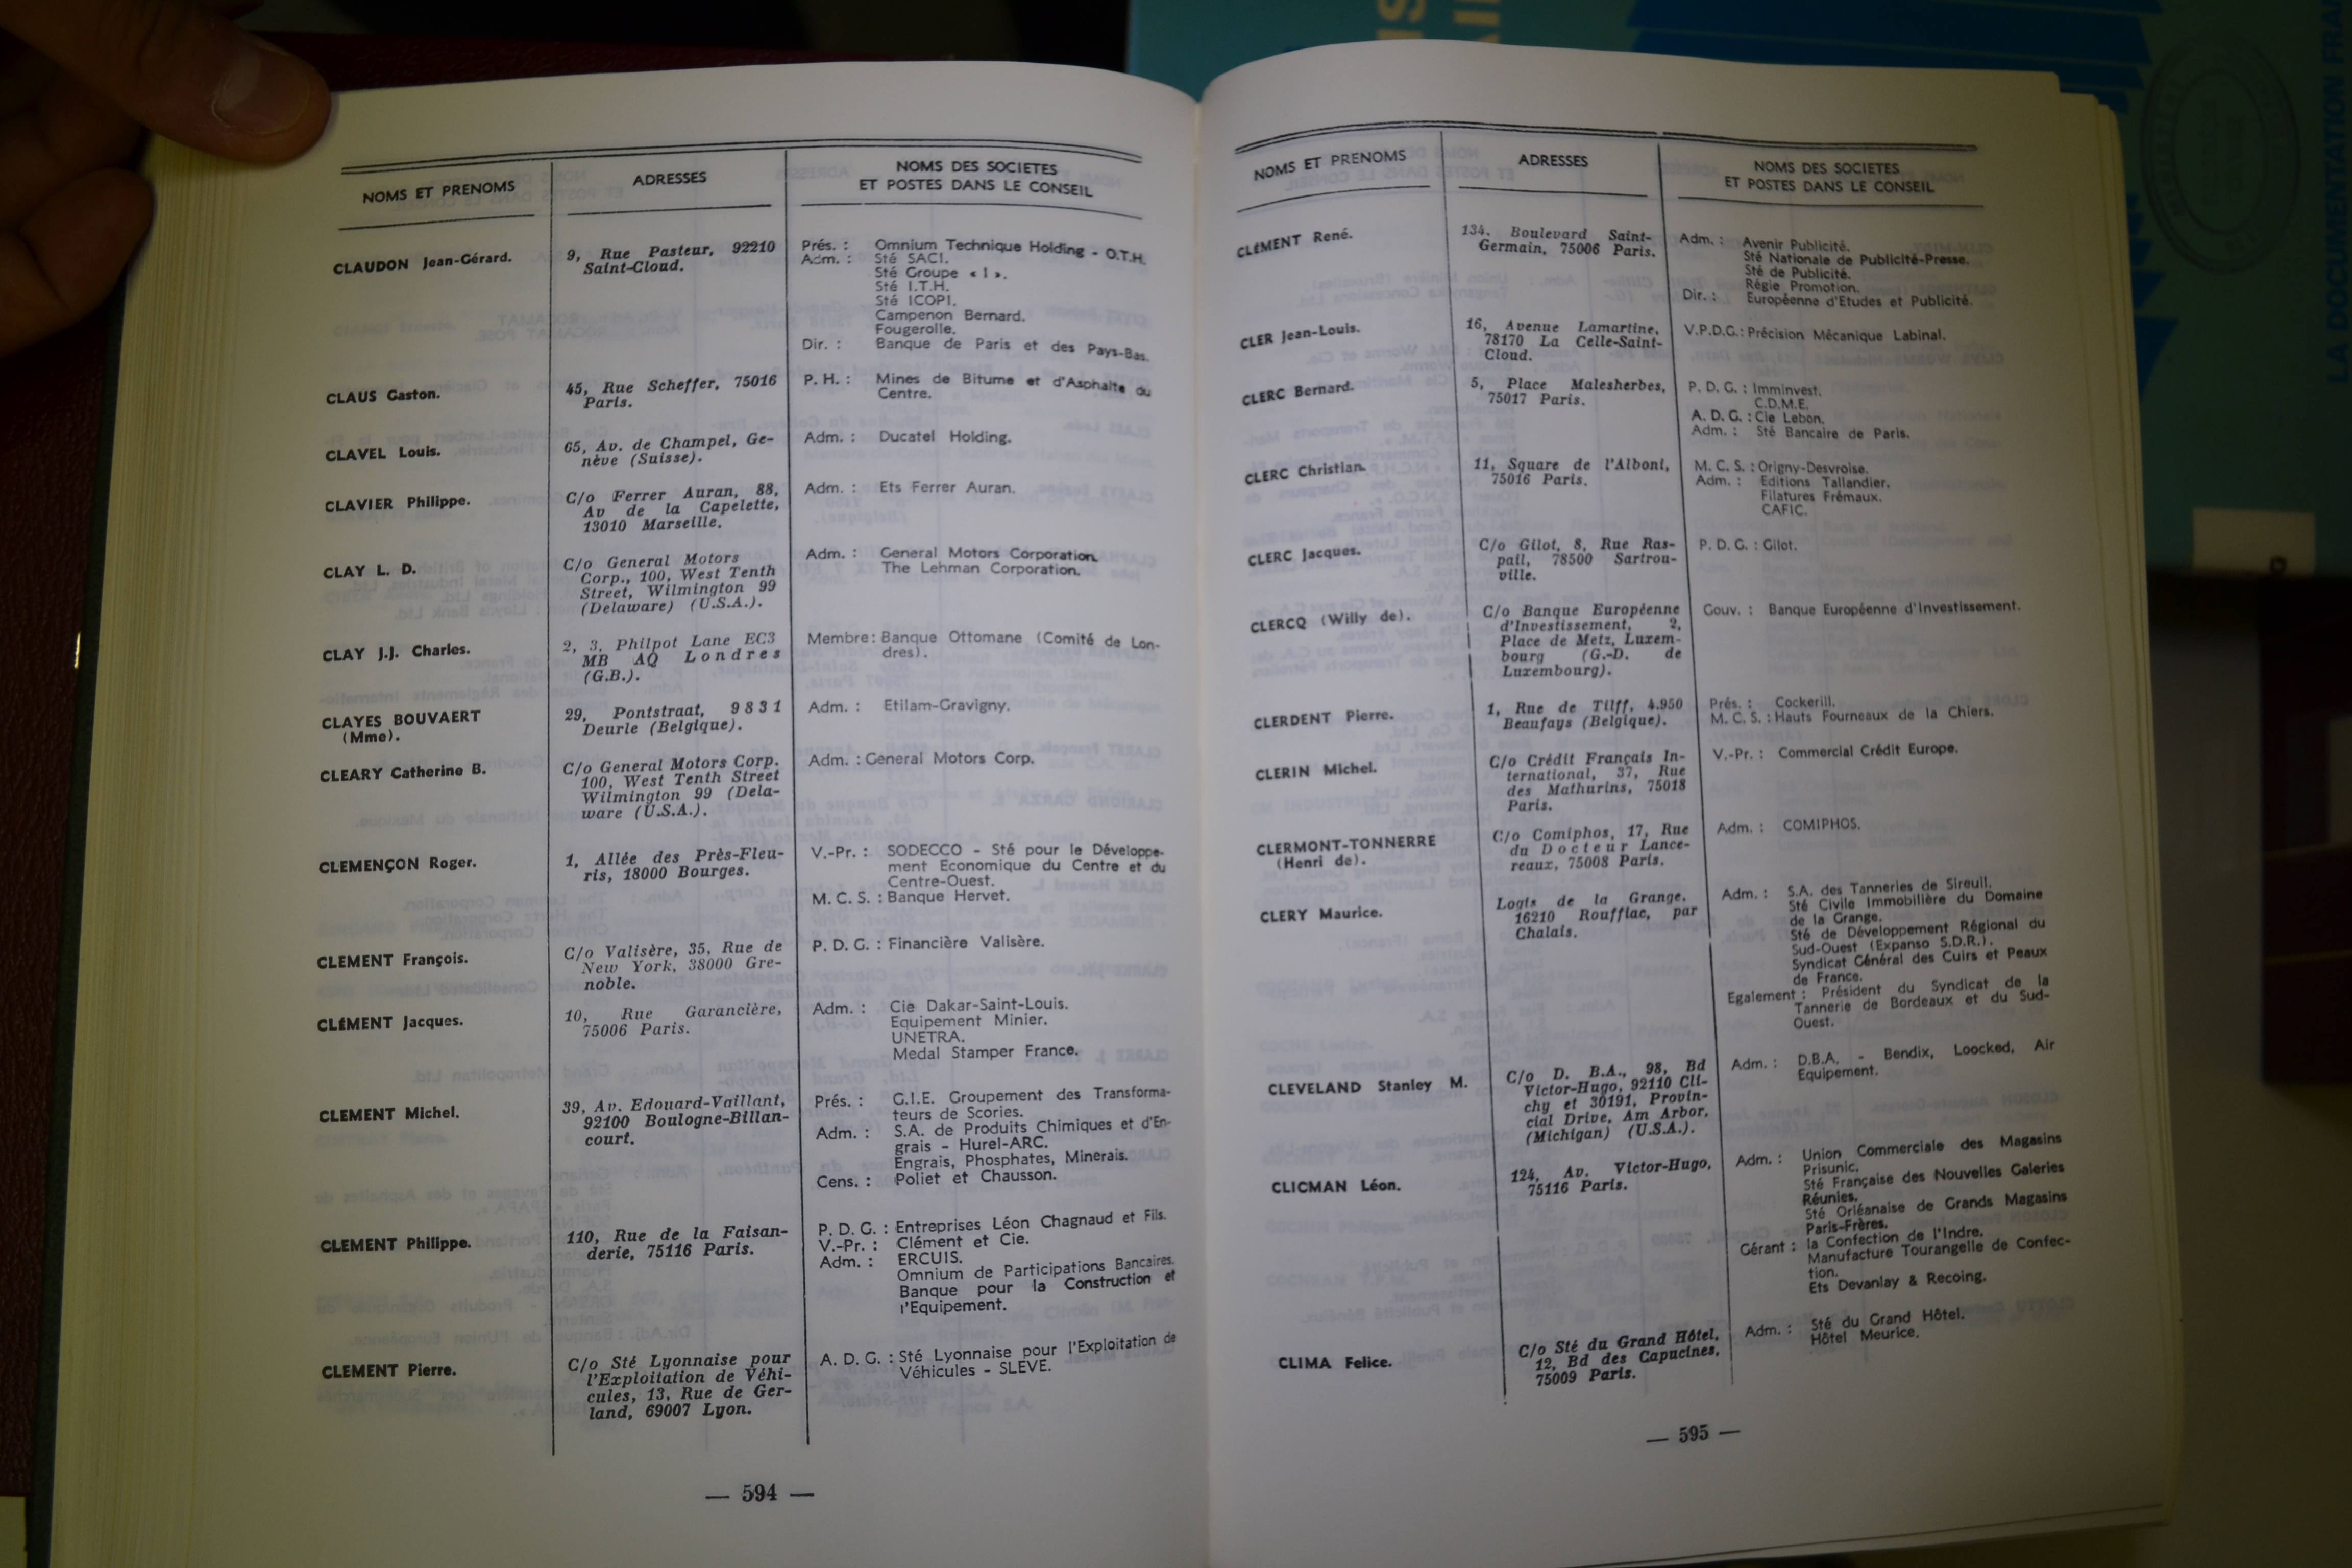 NOMS ET PRENOMS
ADRESSES
NOMS DES SOCIETES
ET POSTES DANS LE CONSEIL
CLAUDON Jean-Gérard.
9, Rue Pasteur, 92210
Saint-Cloud.
Prés. : Omnium Technique Holding - O.T.H.
Adm. : Sté SACI.
Sté Groupe « I ».
Sté I.T.H.
Sté ICOPI.
Campenon Bernard.
Fougerolle.
Dir. : Banque de Paris et des Pays-Bas.
CLAUS Gaston.
45, Rue Scheffer, 75016
Paris.
P. H. : Mines de Bitume et d'Asphalte du
Centre.
CLAVEL Louis.
65, Av. de Champel, Ge-
nève (Suisse).
Adm. : Ducatel Holding.
CLAVIER Philippe.
C/o Ferrer Auran, 88,
Av de la Capelette,
13010 Marseille.
Adm. : Ets Ferrer Auran.
CLAY L. D.
C/o General Motors
Corp., 100, West Tenth
Street, Wilmington 99
(Delaware) (U.S.A.).
Adm. : General Motors Corporation.
The Lehman Corporation.
CLAY J.J. Charles.
2, 3, Philpot Lane EC3
MB AQ Londres
(G.B.).
Membre : Banque Ottomane (Comité de Lon-
dres).
CLAYES BOUVAERT
(Mme).
29, Pontstraat, 9831
Deurle (Belgique).
Adm. : Etilam-Gravigny.
CLEARY Catherine B.
C/o General Motors Corp.
100, West Tenth Street
Wilmington 99 (Dela-
ware (U.S.A.).
Adm. : General Motors Corp.
CLEMENÇON Roger.
1, Allée des Près-Fleu-
ris, 18000 Bourges.
V.-Pr. : SODECCO - Sté pour le Développe-
ment Economique du Centre et du
Centre-Ouest.
M. C. S. : Banque Hervet.
CLEMENT François.
C/o Valisère, 35, Rue de
New York, 38000 Gre-
noble.
P. D. G. : Financière Valisère.
CLÉMENT Jacques.
10, Rue Garancière,
75006 Paris.
Adm. : Cie Dakar-Saint-Louis.
Equipement Minier.
UNETRA.
Medal Stamper France.
CLEMENT Michel.
39, Av. Edouard-Vaillant,
92100 Boulogne-Billan-
court.
Prés. : G.I.E. Groupement des Transforma-
teurs de Scories.
Adm. : S.A. de Produits Chimiques et d'En-
grais - Hurel-ARC.
Engrais, Phosphates, Minerais.
Cens. : Poliet et Chausson.
CLEMENT Philippe.
110, Rue de la Faisan-
derie, 75116 Paris.
P. D. G. : Entreprises Léon Chagnaud et Fils.
V.-Pr. : Clément et Cie.
Adm. : ERCUIS.
Omnium de Participations Bancaires.
Banque pour la Construction et
l'Equipement.
CLEMENT Pierre.
C/o Sté Lyonnaise pour
l'Exploitation de Véhi-
cules, 13, Rue de Ger-
land, 69007 Lyon.
A. D. G. : Sté Lyonnaise pour l'Exploitation de
Véhicules - SLEVE.
— 594 —
NOMS ET PRENOMS
ADRESSES
NOMS DES SOCIETES
ET POSTES DANS LE CONSEIL
CLÉMENT René.
134, Boulevard Saint-
Germain, 75006 Paris.
Adm. : Avenir Publicité.
Sté Nationale de Publicité-Presse.
Sté de Publicité.
Régie Promotion.
Dir. : Européenne d'Etudes et Publicité.
CLER Jean-Louis.
16, Avenue Lamartine,
78170 La Celle-Saint-
Cloud.
V.P.D.G. : Précision Mécanique Labinal.
CLERC Bernard.
5, Place Malesherbes,
75017 Paris.
P. D. G. : Imminvest.
C.D.M.E.
A. D. G. : Cie Lebon.
Adm. : Sté Bancaire de Paris.
CLERC Christian.
11, Square de l'Alboni,
75016 Paris.
M. C. S. : Origny-Desvroise.
Adm. : Editions Tallandier.
Filatures Frémaux.
CAFIC.
CLERC Jacques.
C/o Gilot, 8, Rue Ras-
pail, 78500 Sartrou-
ville.
P. D. G. : Gilot.
CLERCQ (Willy de).
C/o Banque Européenne
d'Investissement, 2,
Place de Metz, Luxem-
bourg (G.-D. de
Luxembourg).
Gouv. : Banque Européenne d'Investissement.
CLERDENT Pierre.
1, Rue de Tilff, 4.950
Beaufays (Belgique).
Prés. : Cockerill.
M. C. S. : Hauts Fourneaux de la Chiers.
CLERIN Michel.
C/o Crédit Français In-
ternational, 37, Rue
des Mathurins, 75018
Paris.
V.-Pr. : Commercial Crédit Europe.
CLERMONT-TONNERRE
(Henri de).
C/o Comiphos, 17, Rue
du Docteur Lance-
reaux, 75008 Paris.
Adm. : COMIPHOS.
CLERY Maurice.
Logis de la Grange,
16210 Rouffiac, par
Chalais.
Adm. : S.A. des Tanneries de Sireuil.
Sté Civile Immobilière du Domaine
de la Grange.
Sté de Développement Régional du
Sud-Ouest (Expanso S.D.R.).
Syndicat Général des Cuirs et Peaux
de France.
Egalement : Président du Syndicat de la
Tannerie de Bordeaux et du Sud-
Ouest.
CLEVELAND Stanley M.
C/o D. B.A., 98, Bd
Victor-Hugo, 92110 Cli-
chy et 30191, Provin-
cial Drive, Am Arbor,
(Michigan) (U.S.A.).
Adm. : D.B.A. - Bendix, Loocked, Air
Equipement.
CLICMAN Léon.
124, Av. Victor-Hugo,
75116 Paris.
Adm. : Union Commerciale des Magasins
Prisunic.
Sté Française des Nouvelles Galeries
Réunies.
Sté Orléanaise de Grands Magasins
Paris-Frères.
Gérant : la Confection de l'Indre.
Manufacture Tourangelle de Confec-
tion.
Ets Devanlay & Recoing.
CLIMA Felice.
C/o Sté du Grand Hôtel,
12, Bd des Capucines,
75009 Paris.
Adm. : Sté du Grand Hôtel.
Hôtel Meurice.
— 595 —
LA DOCUMENTATION FRAN